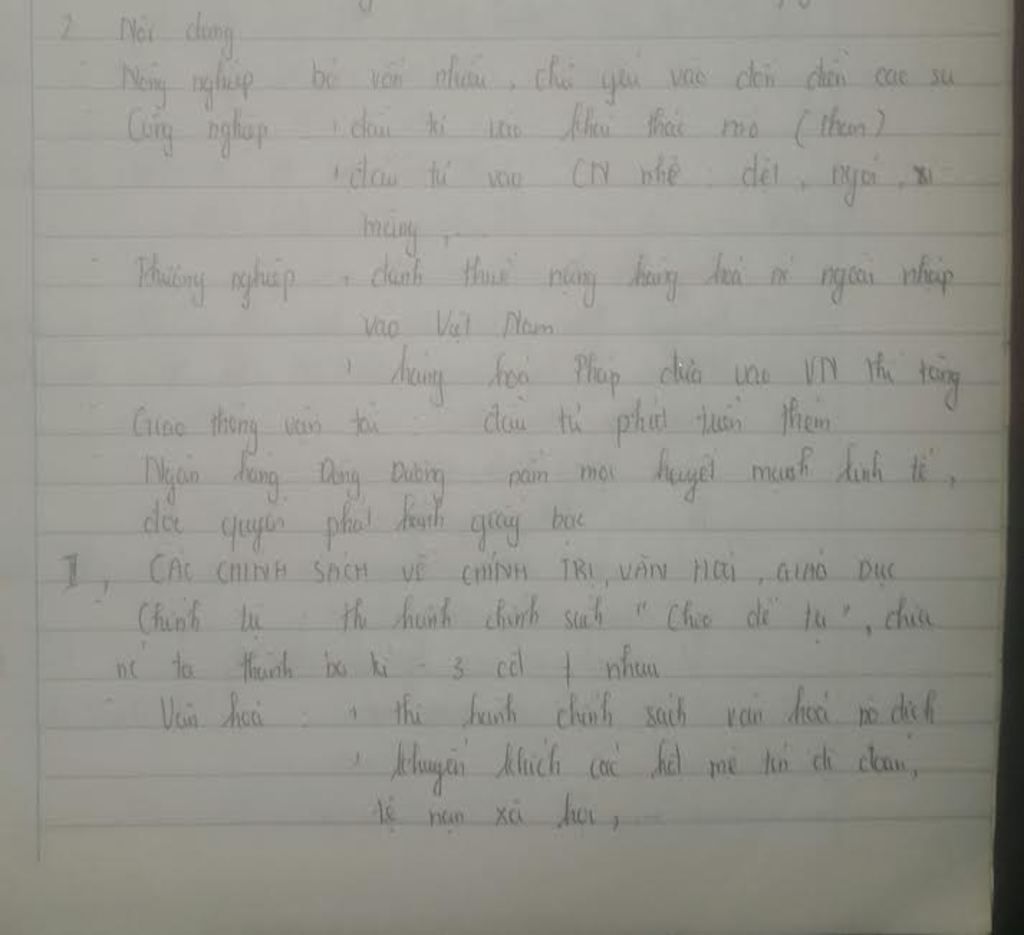 2 Nội dung
Nông nghiệp bỏ vốn nhiều, chủ yếu vào đồn điền cao su
Công nghiệp + đầu tư vào khai thác mỏ (than)
+ đầu tư vào CN nhẹ: dệt, ngói, xi
măng,...
Thương nghiệp + đánh thuế nặng hàng hoá nc ngoài nhập
vào Việt Nam
+ hàng hoá Pháp đưa vào VN thì tăng
Giao thông vận tải: đầu tư phát triển thêm
Ngân hàng Đông Dương nắm mọi huyết mạch kinh tế,
độc quyền phát hành giấy bạc
II, CÁC CHÍNH SÁCH VỀ CHÍNH TRỊ, VĂN HOÁ, GIÁO DỤC
Chính trị: thi hành chính sách "Chia để trị", chia
nc ta thành ba kì - 3 cđ ≠ nhau
Văn hoá: + thi hành chính sách văn hoá nô dịch
+ khuyến khích các hđ mê tín dị đoan,
tệ nạn xã hội,...